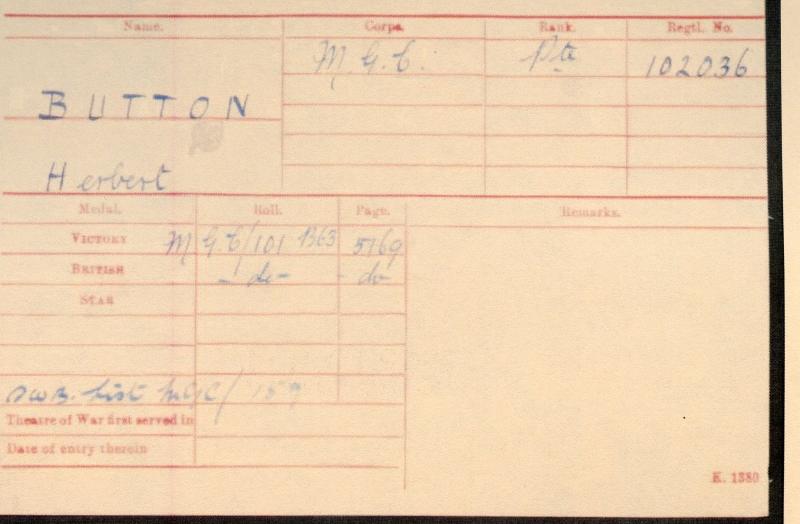 Name. Corps. Rank. Regtl. No.
M. G. C. Pte 102036
BUTTON
Herbert
Medal. Roll. Page. Remarks.
VICTORY M G C/101 B63 5169
BRITISH - do - - do
STAR
SWB. List MGC/
Theatre of War first served in
Date of entry therein
K. 1380